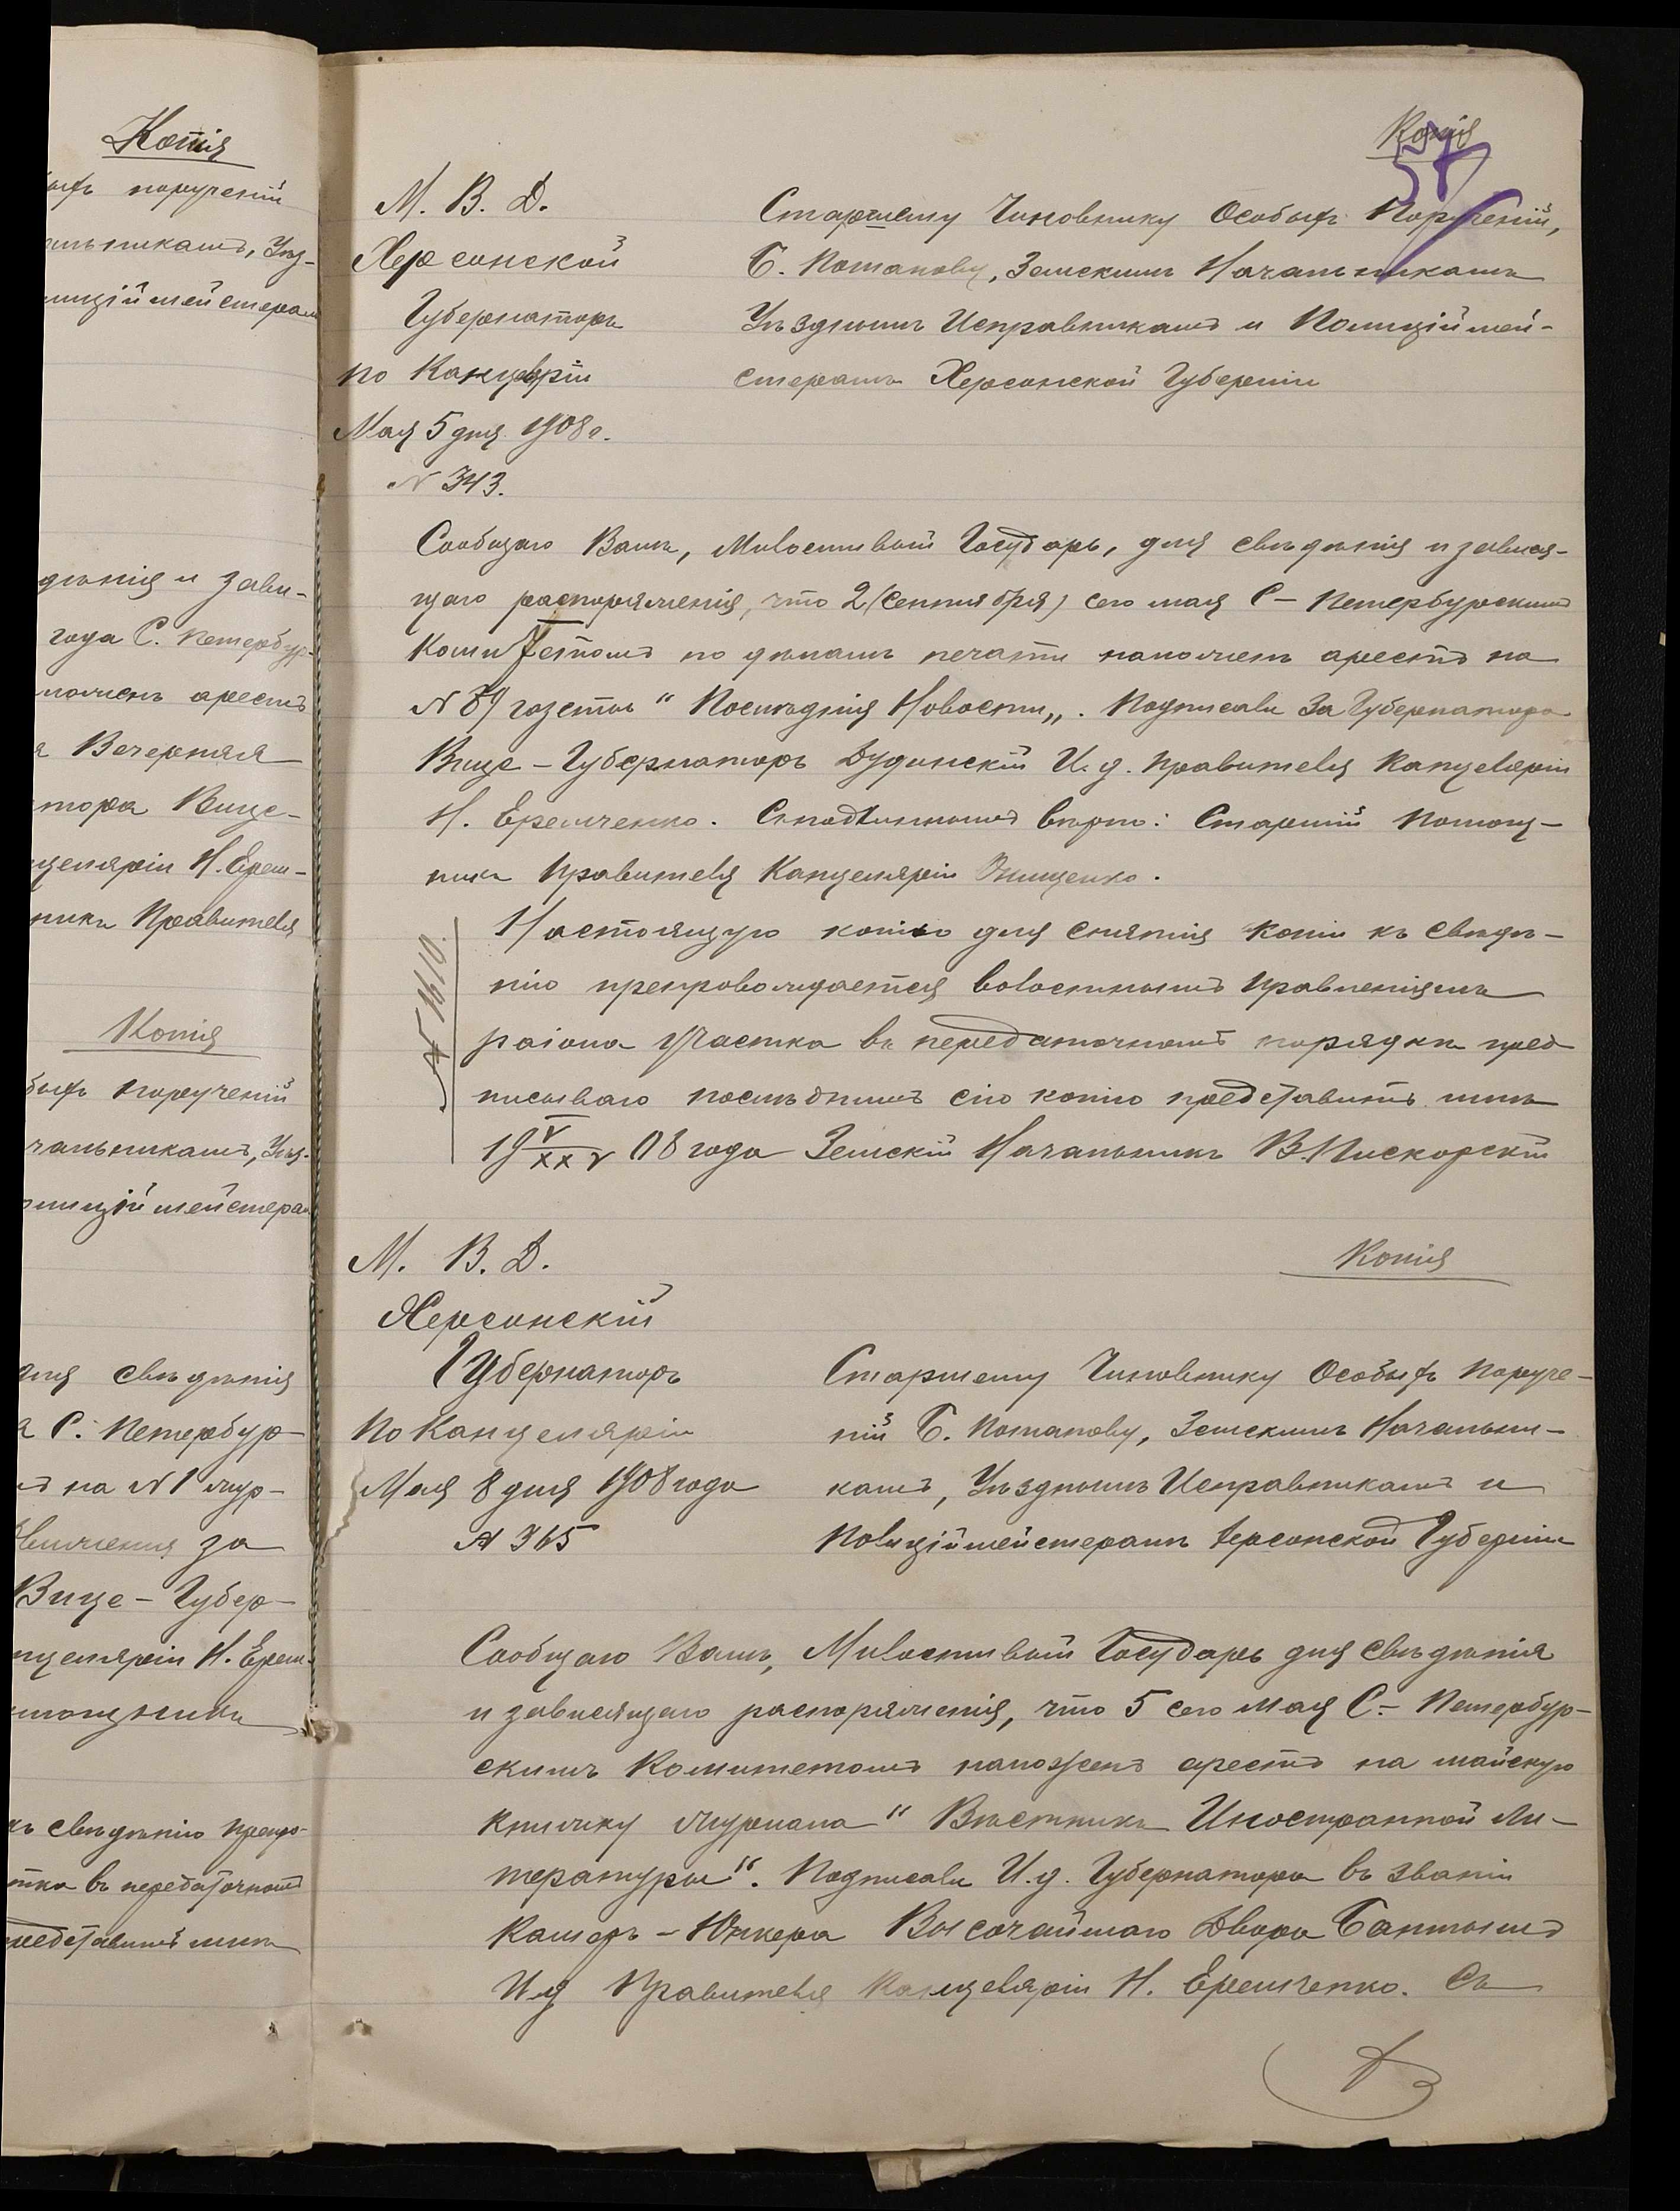 Копія
ыхъ порученій
льникамъ, Уѣз-
лиціймейстерам
дѣнія и зави-
года С. Петербур-
ложенъ арестъ
я Вечерняя
тора Вице-
целяріи Н. Ерем-
ника Правителя
Копія
быхъ порученій
чальникамъ, Уѣз-
олиціймейстерам
для свѣдѣнія
я С. Петербур-
ъ на N 1 жур-
за
Вице-Губер-
нцеляріи Н. Ерем-
мощника
къ свѣдѣнію препр-
тка въ передаточномъ
представить мнѣ
Копія
57
М. В. Д.
Херсонской
Губернаторъ
по Канцеляріи
Мая 5 дня 1908 г.
N 343.
Старшему Чиновнику Особыхъ Порученій,
Б. Потапову, Земскимъ Начальникамъ
Уѣзднымъ Исправникамъ и Полиціймей-
стерамъ Херсонской Губерніи
Сообщаю Вамъ, Милостивый Государь, для свѣдѣнія и завися-
щаго распоряженія, что 2 (сентября) сего мая С-Петербурскимъ
Комитетомъ по дѣламъ печати наложенъ арестъ на
N 89 газеты "Послѣднія Новости„. Подписали За Губернатора
Вице-Губернаторъ Дудинскій И. д. Правителя Канцеляріи
Н. Еремченко. Съ подлиннымъ вѣрно: Старшій Помощ-
никъ Правителя Канцеляріи Онищенко.
N 1610.
Настоящую копію для снятія копіи къ свѣдѣ-
нію препровождается волостнымъ правленіямъ
раіона участка въ передаточномъ порядкѣ пред
писываю послѣднимъ сію копію представить мнѣ
19 V/XX 08 года Земскій Начальникъ В. Пискорскій
М. В. Д.
Копія
Херсонскій
Губернаторъ
По Канцеляріи
Мая 8 дня 1908 года
N 365
Старшему Чиновнику Особыхъ Поруче-
ній Б. Потапову, Земскимъ Начальни-
камъ, Уѣзднымъ Исправникамъ и
Полиціймейстерамъ Херсонской Губерніи
Сообщаю Вамъ, Милостивый Государь для свѣдѣнія
и зависящаго распоряженія, что 5 сего мая С.-Петербур-
скимъ Комитетомъ наложенъ арестъ на майскую
книжку журнала "Вѣстникъ Иностранной Ли-
тературы". Подписали И. д. Губернатора въ званіи
Камеръ-Юнкера Высочайшаго Двора Бантышъ
И.д Правителя Канцеляріи Н. Еремченко. Съ